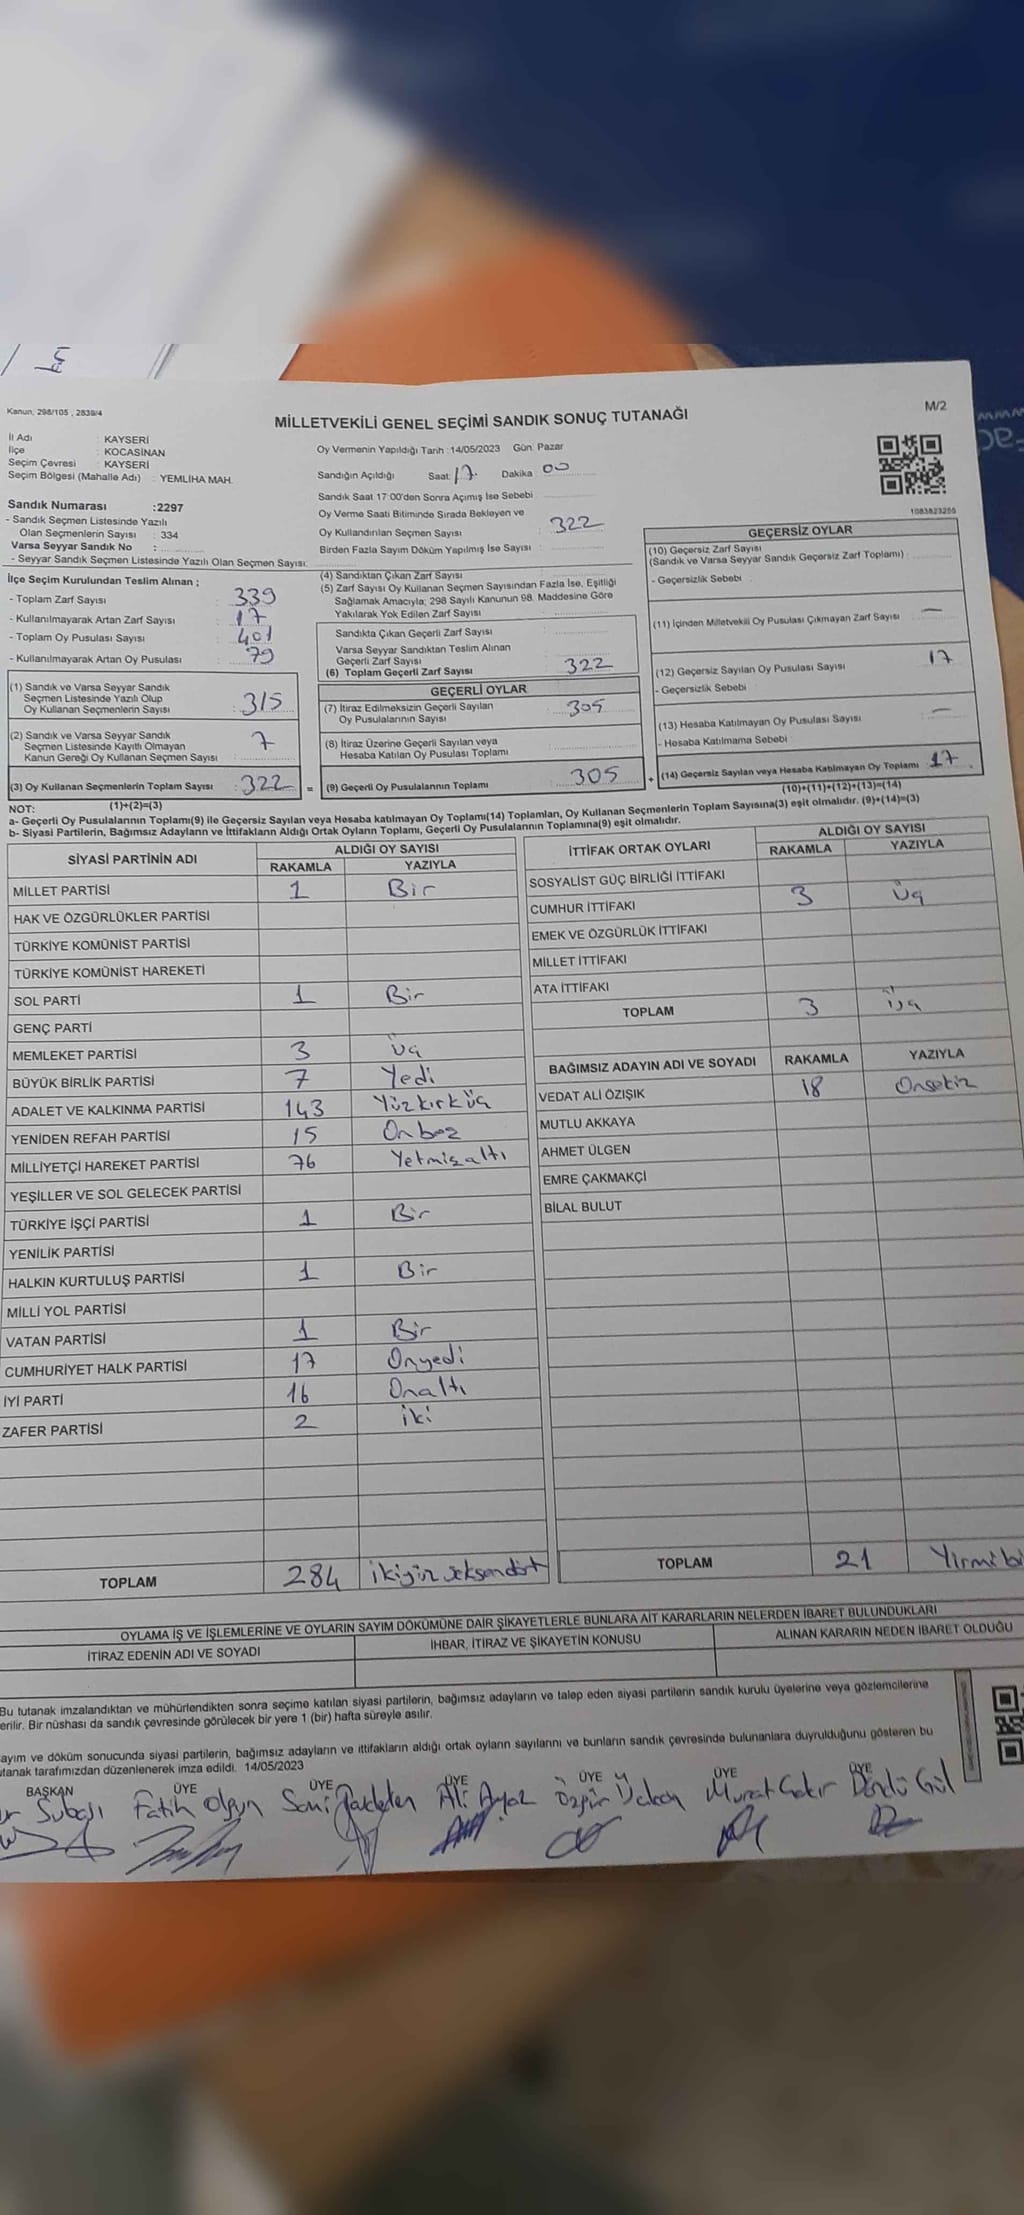 Kanun, 298/105 , 2839/4
M/2
MİLLETVEKİLİ GENEL SEÇİMİ SANDIK SONUÇ TUTANAĞI
İl Adı : KAYSERİ
İlçe : KOCASİNAN
Seçim Çevresi : KAYSERİ
Seçim Bölgesi (Mahalle Adı) : YEMLİHA MAH.
Sandık Numarası :2297
- Sandık Seçmen Listesinde Yazılı
Olan Seçmenlerin Sayısı : 334
Varsa Seyyar Sandık No :
- Seyyar Sandık Seçmen Listesinde Yazılı Olan Seçmen Sayısı:
Oy Vermenin Yapıldığı Tarih :14/05/2023 Gün: Pazar
Sandığın Açıldığı Saat: 17 Dakika 00
Sandık Saat 17:00'den Sonra Açmış İse Sebebi
Oy Verme Saati Bitiminde Sırada Bekleyen ve
Oy Kullandırılan Seçmen Sayısı : 322
Birden Fazla Sayım Döküm Yapılmış İse Sayısı :
1083823255
İlçe Seçim Kurulundan Teslim Alınan ;
- Toplam Zarf Sayısı : 339
- Kullanılmayarak Artan Zarf Sayısı : 17
- Toplam Oy Pusulası Sayısı : 401
- Kullanılmayarak Artan Oy Pusulası : 79
(1) Sandık ve Varsa Seyyar Sandık
Seçmen Listesinde Yazılı Olup
Oy Kullanan Seçmenlerin Sayısı : 315
(2) Sandık ve Varsa Seyyar Sandık
Seçmen Listesinde Kayıtlı Olmayan
Kanun Gereği Oy Kullanan Seçmen Sayısı : 7
(3) Oy Kullanan Seçmenlerin Toplam Sayısı : 322 =
(1)+(2)=(3)
(4) Sandıktan Çıkan Zarf Sayısı
(5) Zarf Sayısı Oy Kullanan Seçmen Sayısından Fazla İse, Eşitliği
Sağlamak Amacıyla; 298 Sayılı Kanunun 98. Maddesine Göre
Yakılarak Yok Edilen Zarf Sayısı :
Sandıkta Çıkan Geçerli Zarf Sayısı :
Varsa Seyyar Sandıktan Teslim Alınan
Geçerli Zarf Sayısı
(6) Toplam Geçerli Zarf Sayısı : 322
GEÇERLİ OYLAR
(7) İtiraz Edilmeksizin Geçerli Sayılan
Oy Pusulalarının Sayısı : 305
(8) İtiraz Üzerine Geçerli Sayılan veya
Hesaba Katılan Oy Pusulası Toplamı
(9) Geçerli Oy Pusulalarının Toplamı : 305 +
GEÇERSİZ OYLAR
(10) Geçersiz Zarf Sayısı
(Sandık ve Varsa Seyyar Sandık Geçersiz Zarf Toplamı) :
- Geçersizlik Sebebi :
(11) İçinden Milletvekili Oy Pusulası Çıkmayan Zarf Sayısı : —
(12) Geçersiz Sayılan Oy Pusulası Sayısı : 17
- Geçersizlik Sebebi
(13) Hesaba Katılmayan Oy Pusulası Sayısı : —
- Hesaba Katılmama Sebebi :
(14) Geçersiz Sayılan veya Hesaba Katılmayan Oy Toplamı : 17
(10)+(11)+(12)+(13)=(14)
NOT:
a- Geçerli Oy Pusulalarının Toplamı(9) ile Geçersiz Sayılan veya Hesaba katılmayan Oy Toplamı(14) Toplamları, Oy Kullanan Seçmenlerin Toplam Sayısına(3) eşit olmalıdır. (9)+(14)=(3)
b- Siyasi Partilerin, Bağımsız Adayların ve İttifakların Aldığı Ortak Oyların Toplamı, Geçerli Oy Pusulalarının Toplamına(9) eşit olmalıdır.
SİYASİ PARTİNİN ADI ALDIĞI OY SAYISI
RAKAMLA YAZIYLA
MİLLET PARTİSİ 1 Bir
HAK VE ÖZGÜRLÜKLER PARTİSİ
TÜRKİYE KOMÜNİST PARTİSİ
TÜRKİYE KOMÜNİST HAREKETİ
SOL PARTİ 1 Bir
GENÇ PARTİ
MEMLEKET PARTİSİ 3 Üç
BÜYÜK BİRLİK PARTİSİ 7 Yedi
ADALET VE KALKINMA PARTİSİ 143 Yüzkırküç
YENİDEN REFAH PARTİSİ 15 Onbeş
MİLLİYETÇİ HAREKET PARTİSİ 76 Yetmişaltı
YEŞİLLER VE SOL GELECEK PARTİSİ
TÜRKİYE İŞÇİ PARTİSİ 1 Bir
YENİLİK PARTİSİ
HALKIN KURTULUŞ PARTİSİ 1 Bir
MİLLİ YOL PARTİSİ
VATAN PARTİSİ 1 Bir
CUMHURİYET HALK PARTİSİ 17 Onyedi
İYİ PARTİ 16 Onaltı
ZAFER PARTİSİ 2 iki
TOPLAM 284 ikiyüzseksendört
İTTİFAK ORTAK OYLARI ALDIĞI OY SAYISI
RAKAMLA YAZIYLA
SOSYALİST GÜÇ BİRLİĞİ İTTİFAKI
CUMHUR İTTİFAKI 3 Üç
EMEK VE ÖZGÜRLÜK İTTİFAKI
MİLLET İTTİFAKI
ATA İTTİFAKI
TOPLAM 3 Üç
BAĞIMSIZ ADAYIN ADI VE SOYADI RAKAMLA YAZIYLA
VEDAT ALİ ÖZIŞIK 18 Onsekiz
MUTLU AKKAYA
AHMET ÜLGEN
EMRE ÇAKMAKÇİ
BİLAL BULUT
TOPLAM 21 Yirmibi
OYLAMA İŞ VE İŞLEMLERİNE VE OYLARIN SAYIM DÖKÜMÜNE DAİR ŞİKAYETLERLE BUNLARA AİT KARARLARIN NELERDEN İBARET BULUNDUKLARI
İTİRAZ EDENİN ADI VE SOYADI İHBAR, İTİRAZ VE ŞİKAYETİN KONUSU ALINAN KARARIN NEDEN İBARET OLDUĞU
Bu tutanak imzalandıktan ve mühürlendikten sonra seçime katılan siyasi partilerin, bağımsız adayların ve talep eden siyasi partilerin sandık kurulu üyelerine veya gözlemcilerine
erilir. Bir nüshası da sandık çevresinde görülecek bir yere 1 (bir) hafta süreyle asılır.
ayım ve döküm sonucunda siyasi partilerin, bağımsız adayların ve ittifakların aldığı ortak oyların sayılarını ve bunların sandık çevresinde bulunanlara duyrulduğunu gösteren bu
utanak tarafımızdan düzenlenerek imza edildi. 14/05/2023
BAŞKAN ÜYE ÜYE ÜYE ÜYE ÜYE ÜYE
Subaşı Fatih Olgun Sami Ali Ayaz Özgür Murat Çakır Döndü Gül